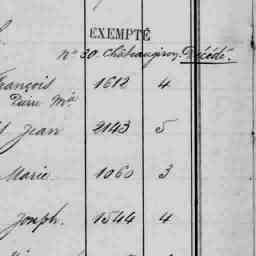 EXEMPTÉ
n° 30. Châteaugiron. Décédé.
François 1612 4
Pierre Mie
Jean 2143 5
Marie 1060 3
Joseph. 1544 4